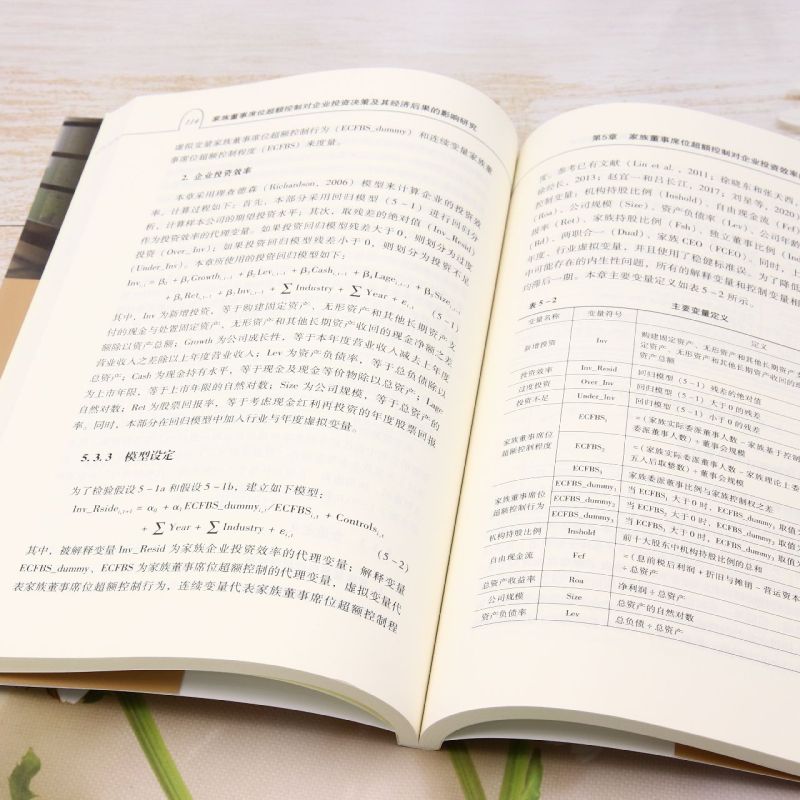 114 家族董事席位超额控制对企业投资决策及其经济后果的影响研究
虚拟变量家族董事席位超额控制行为（ECFBS_dummy）和连续变量家族董
事席位超额控制程度（ECFBS）来度量。
2. 企业投资效率
本章采用理查德森（Richardson，2006）模型来计算企业的投资效
率，计算过程如下：首先，本部分采用回归模型（5-1）进行回归分
析，计算样本公司的期望投资水平；其次，取残差的绝对值（Inv_Resid）
作为投资效率的代理变量。如果投资回归模型残差大于0，则划分为过度
投资（Over_Inv）；如果投资回归模型残差小于0，则划分为投资不足
（Under_Inv）。本章所使用的投资回归模型如下：
Inv_{i,t} = β_0 + β_1 Growth_{i,t-1} + β_2 Lev_{i,t-1} + β_3 Cash_{i,t-1} + β_4 Lage_{i,t-1} + β_5 Size_{i,t-1}
+ β_6 Ret_{i,t-1} + β_7 Inv_{i,t-1} + ∑ Industry + ∑ Year + ε_{i,t} （5-1）
其中，Inv为新增投资，等于购建固定资产、无形资产和其他长期资产支
付的现金与处置固定资产、无形资产和其他长期资产收回的现金净额之差
额除以资产总额；Growth为公司成长性，等于本年度营业收入减去上年度
营业收入之差除以上年度营业收入；Lev为资产负债率，等于总负债除以
总资产；Cash为现金持有水平，等于现金及现金等价物除以总资产；Lage
为上市年限，等于上市年限的自然对数；Size为公司规模，等于总资产的
自然对数；Ret为股票回报率，等于考虑现金红利再投资的年度股票回报
率。同时，本部分在回归模型中加入行业与年度虚拟变量。
5.3.3 模型设定
为了检验假设5-1a和假设5-1b，建立如下模型：
Inv_Rside_{i,t+1} = α_0 + α_1 ECFBS_dummy_{i,t}/ECFBS_{i,t} + Controls_{i,t}
+ ∑ Year + ∑ Industry + ε_{i,t} （5-2）
其中，被解释变量Inv_Resid为家族企业投资效率的代理变量；解释变量
ECFBS_dummy、ECFBS为家族董事席位超额控制的代理变量，虚拟变量代
表家族董事席位超额控制行为，连续变量代表家族董事席位超额控制程
第5章 家族董事席位超额控制对企业投资效率的
度。参考已有文献（Lin et al.，2011；徐晓东和张天西，
徐经长，2013；赵宜一和吕长江，2017；刘星等，2020）
控制变量，机构持股比例（Inshold）、自由现金流（Fcf）
（Roa）、公司规模（Size）、资产负债率（Lev）、公司年龄
率（Ret）、家族持股比例（Fsh）、独立董事比例（Ind
（Bd）、两职合一（Dual）、家族CEO（FCEO）。同时，上
年度、行业虚拟变量，并且使用了稳健标准误。为了降低
中可能存在的内生性问题，所有的解释变量和控制变量相
的滞后一期。本章主要变量定义如表5-2所示。
表5-2 主要变量定义
变量名称 变量符号 定义
新增投资 Inv 购建固定资产、无形资产和其他长期资产支
定资产、无形资产和其他长期资产收回的现
资产总额
投资效率 Inv_Resid 回归模型（5-1）残差的绝对值
过度投资 Over_Inv 回归模型（5-1）大于0的残差
投资不足 Under_Inv 回归模型（5-1）小于0的残差
家族董事席位超额控制程度 ECFBS_1 =（家族实际委派董事人数-家族基于控制
委派董事人数）÷董事会规模
ECFBS_2 =（家族实际委派董事人数-家族理论上委
五入后取整数）÷董事会规模
ECFBS_3 家族委派董事比例与家族控制权之差
家族董事席位超额控制行为 ECFBS_dummy_1 当ECFBS_1大于0时，ECFBS_dummy_1取值为
ECFBS_dummy_2 当ECFBS_2大于0时，ECFBS_dummy_2取值为
ECFBS_dummy_3 当ECFBS_3大于0时，ECFBS_dummy_3取值
机构持股比例 Inshold 前十大股东中机构持股比例的总和
自由现金流 Fcf =（息前税后利润+折旧与摊销-营运资本
÷总资产
总资产收益率 Roa 净利润÷总资产
公司规模 Size 总资产的自然对数
资产负债率 Lev 总负债÷总资产